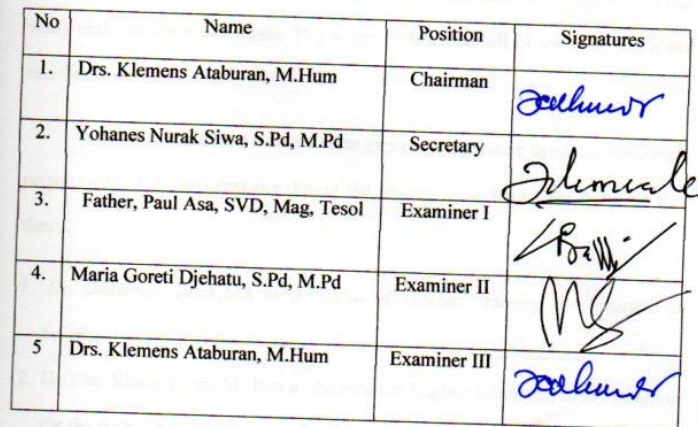 No Name Position Signatures
1. Drs. Klemens Ataburan, M.Hum Chairman
2. Yohanes Nurak Siwa, S.Pd, M.Pd Secretary
3. Father, Paul Asa, SVD, Mag, Tesol Examiner I
4. Maria Goreti Djehatu, S.Pd, M.Pd Examiner II
5 Drs. Klemens Ataburan, M.Hum Examiner III